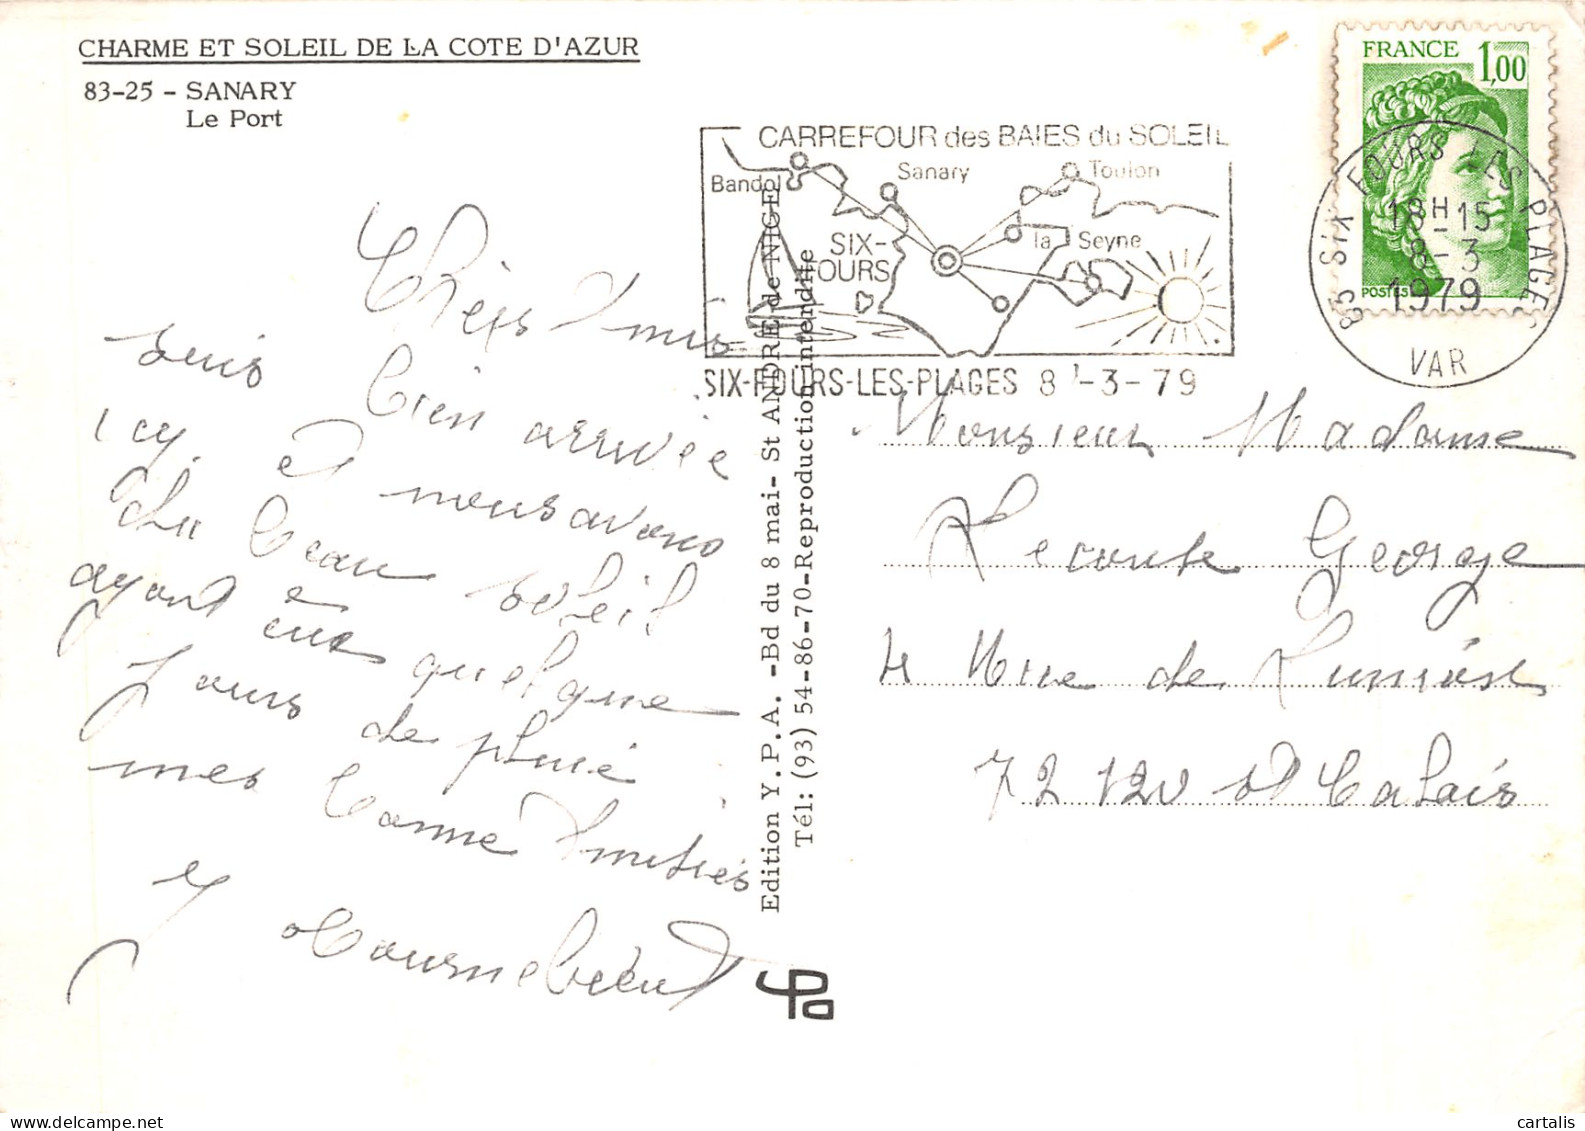 CHARME ET SOLEIL DE LA COTE D'AZUR
83-25 - SANARY
Le Port
FRANCE 1,00
POSTES
83 SIX FOURS LES PLAGES
18H-15
8-3
1979
VAR
CARREFOUR des BAIES du SOLEIL
Bandol
Sanary
Toulon
SIX-FOURS
la Seyne
SIX-FOURS-LES-PLAGES 8-3-79
Chers Amis
suis bien arrivée
icy, et nous avons
du beau soleil
ayant eus quelque
jours de pluie
mes bonne Amitiés
Edition Y.P.A. -Bd du 8 mai- St ANDRE de NICE
Tél: (93) 54-86-70-Reproduction interdite
Monsieur Madame
Leconte George
4 Rue de
72120 St Calais